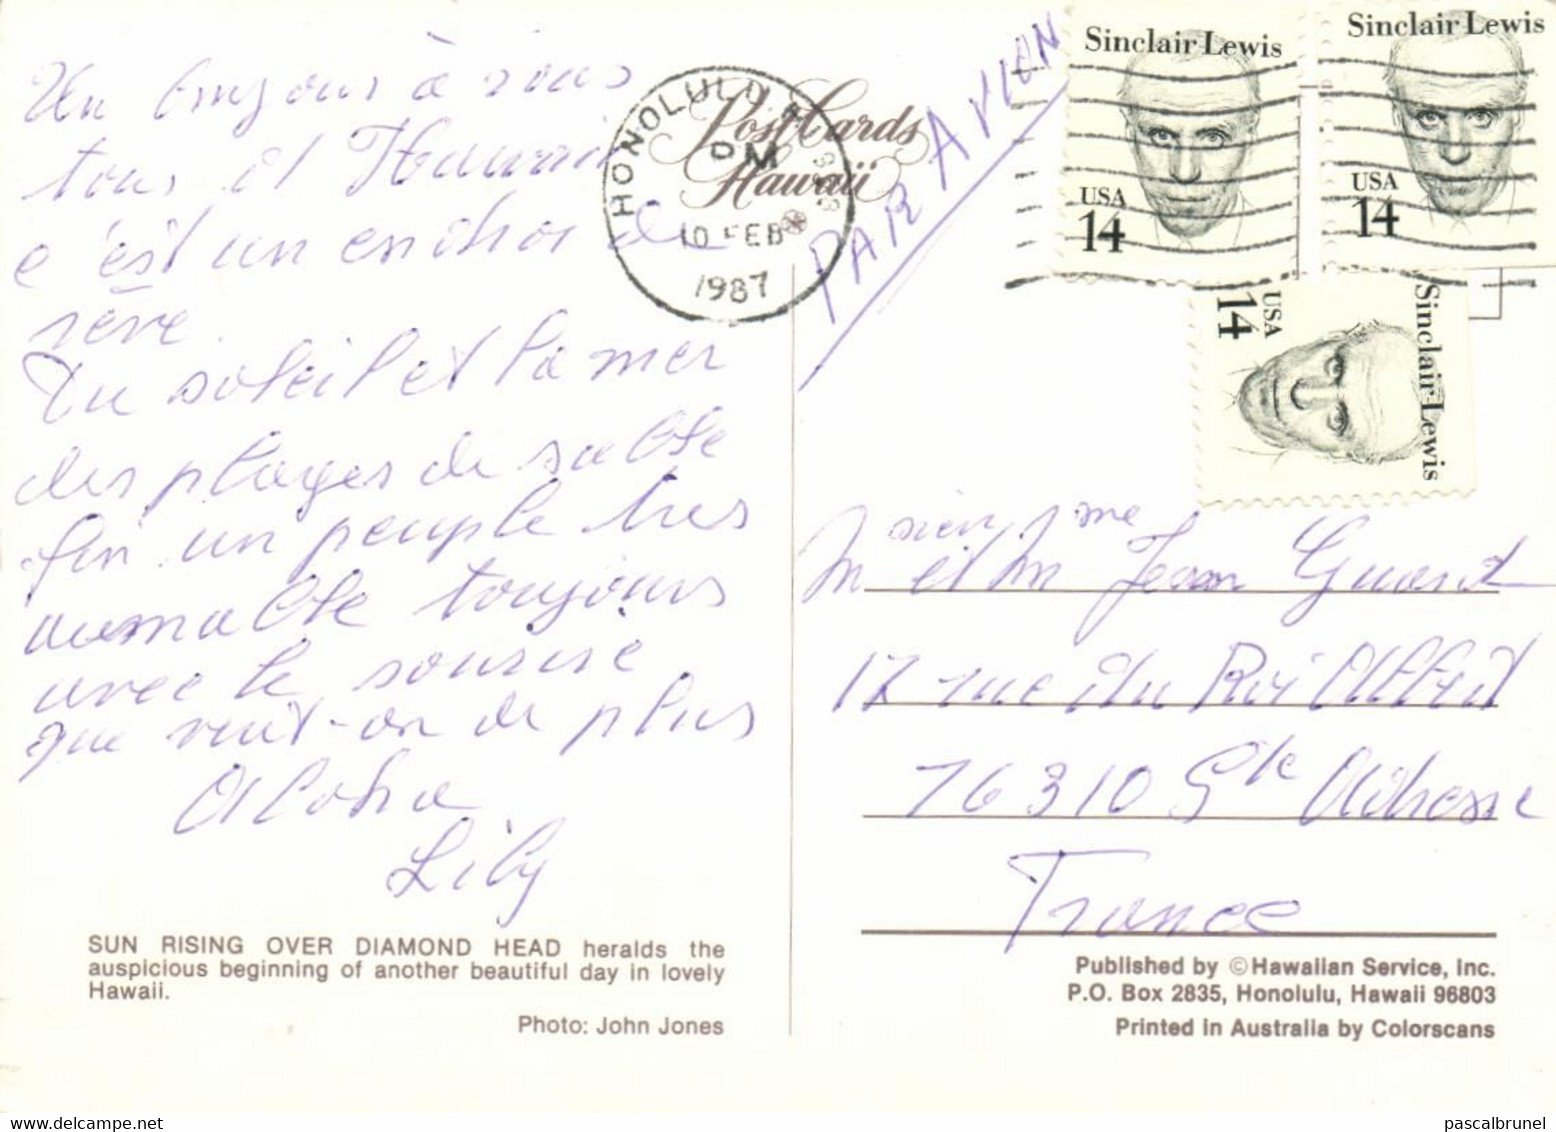 Un bonjour à vous
tous d'Hawaii
c'est un endroit de
rêve.
Du soleil et la mer
des plages de sable
fin un peuple très
aimable toujours
avec le sourire
que veut-on de plus
Aloha
Lily
SUN RISING OVER DIAMOND HEAD heralds the
auspicious beginning of another beautiful day in lovely
Hawaii.
Photo: John Jones
HONOLULU
PM
10 FEB
1987
Post Cards
Hawaii
PAR AVION
Sinclair Lewis
USA
14
Sinclair Lewis
USA
14
Sinclair Lewis
USA
14
Monsieur et Mme Jean
17 rue du Roi Albert
76310 Ste Adresse
France
Published by © Hawaiian Service, Inc.
P.O. Box 2835, Honolulu, Hawaii 96803
Printed in Australia by Colorscans
pascalbrunel